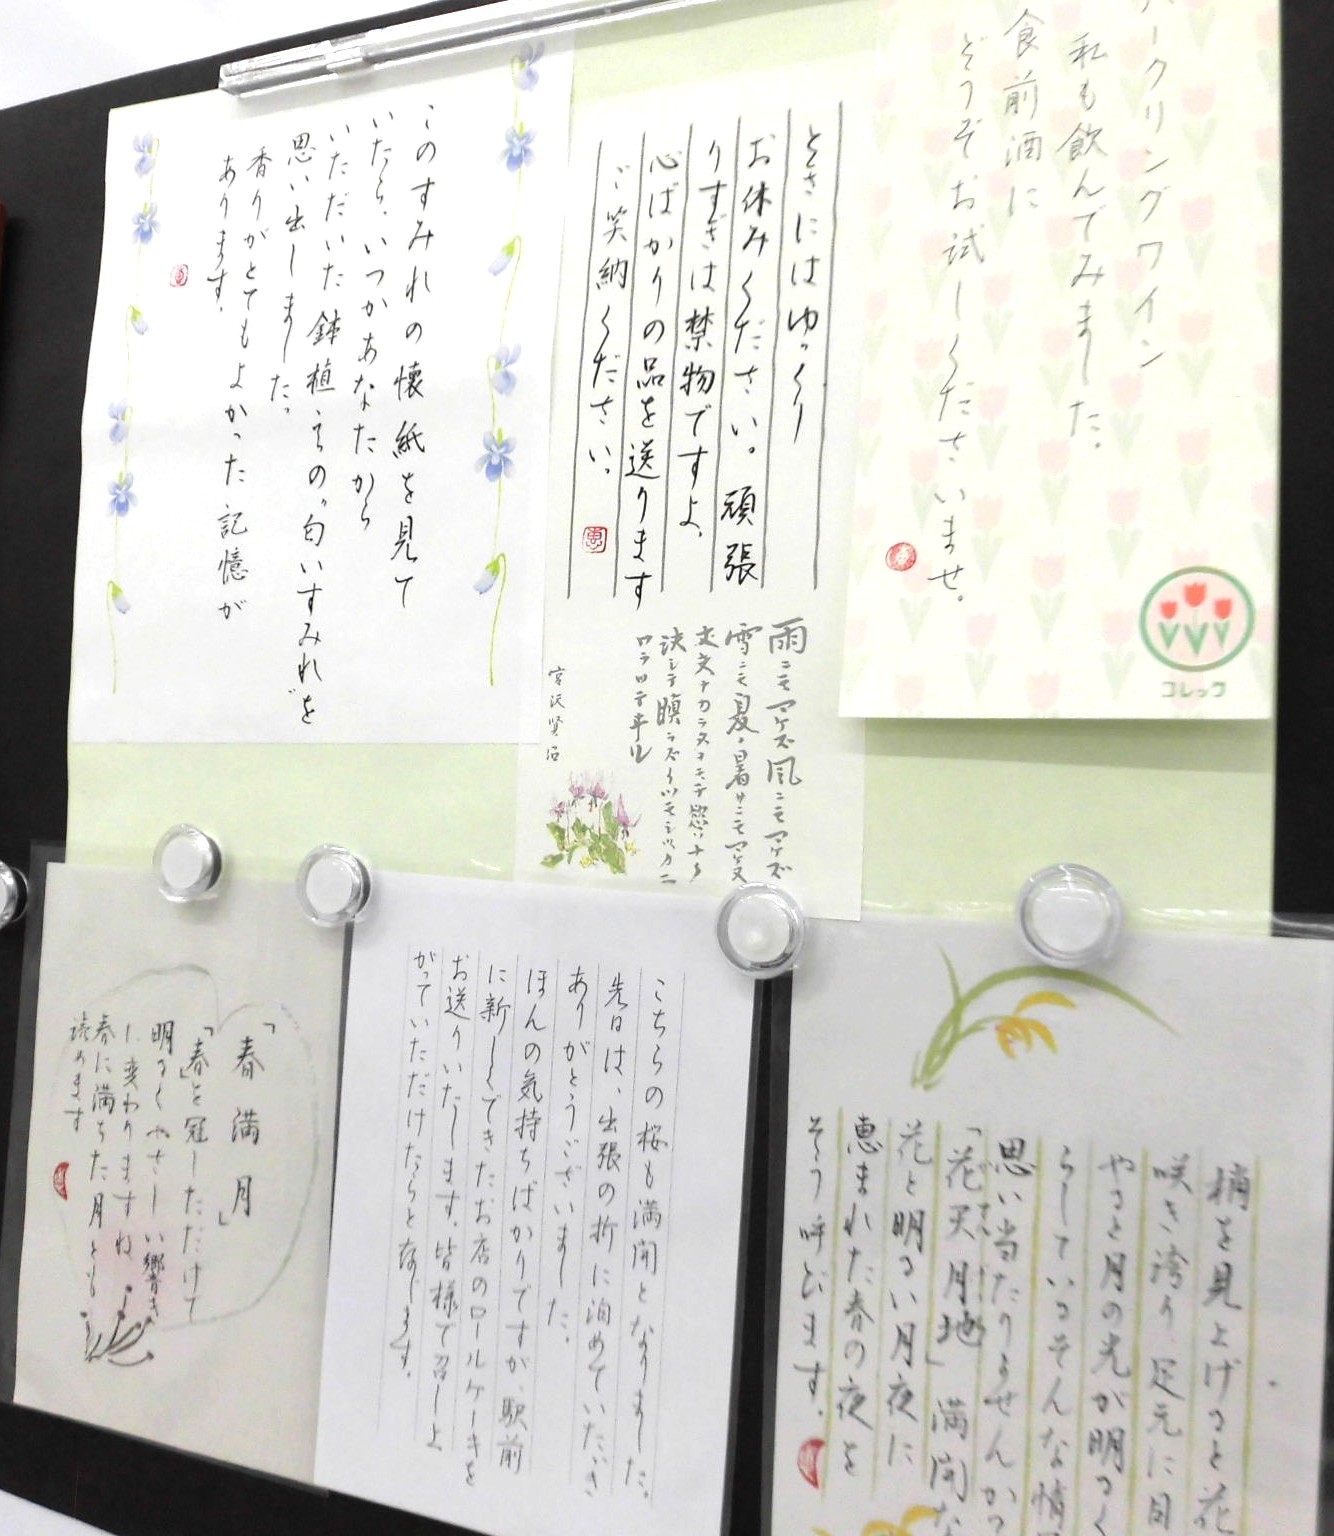 このすみれの懐紙を見て
いたら、いつかあなたから
いただいた鉢植えの〝匂いすみれ〟を
思い出しました。
香りがとてもよかった記憶が
あります。
ときにはゆっくり
お休みください。頑張
りすぎは禁物ですよ、
心ばかりの品を送ります
ご笑納ください。
雨ニモマケズ風ニモマケズ
雪ニモ夏ノ暑サニモマケヌ
丈夫ナカラダヲモチ慾ハナク
決シテ瞋ラズイツモシヅカニ
ワラッテヰル
宮沢賢治
ークリングワイン
私も飲んでみました。
食前酒に
どうぞお試しくださいませ。
コレック
「春満月」
「春」を冠しただけで
明るくやさしい響き
に変わりますね
春に満ちた月とも
読めます
こちらの桜も満開となりました。
先日は、出張の折に泊めていただき
ありがとうございました。
ほんの気持ちばかりですが、駅前
に新しくできたお店のロールケーキを
お送りいたします。皆様で召し上
がっていただけたらと存じます。
梢を見上げると花
咲き誇り、足元に目
やると月の光が明るく
らしているそんな情
思い当たりませんか
「花天月地」満開な
花と明るい月夜に
恵まれた春の夜を
そう呼びます。